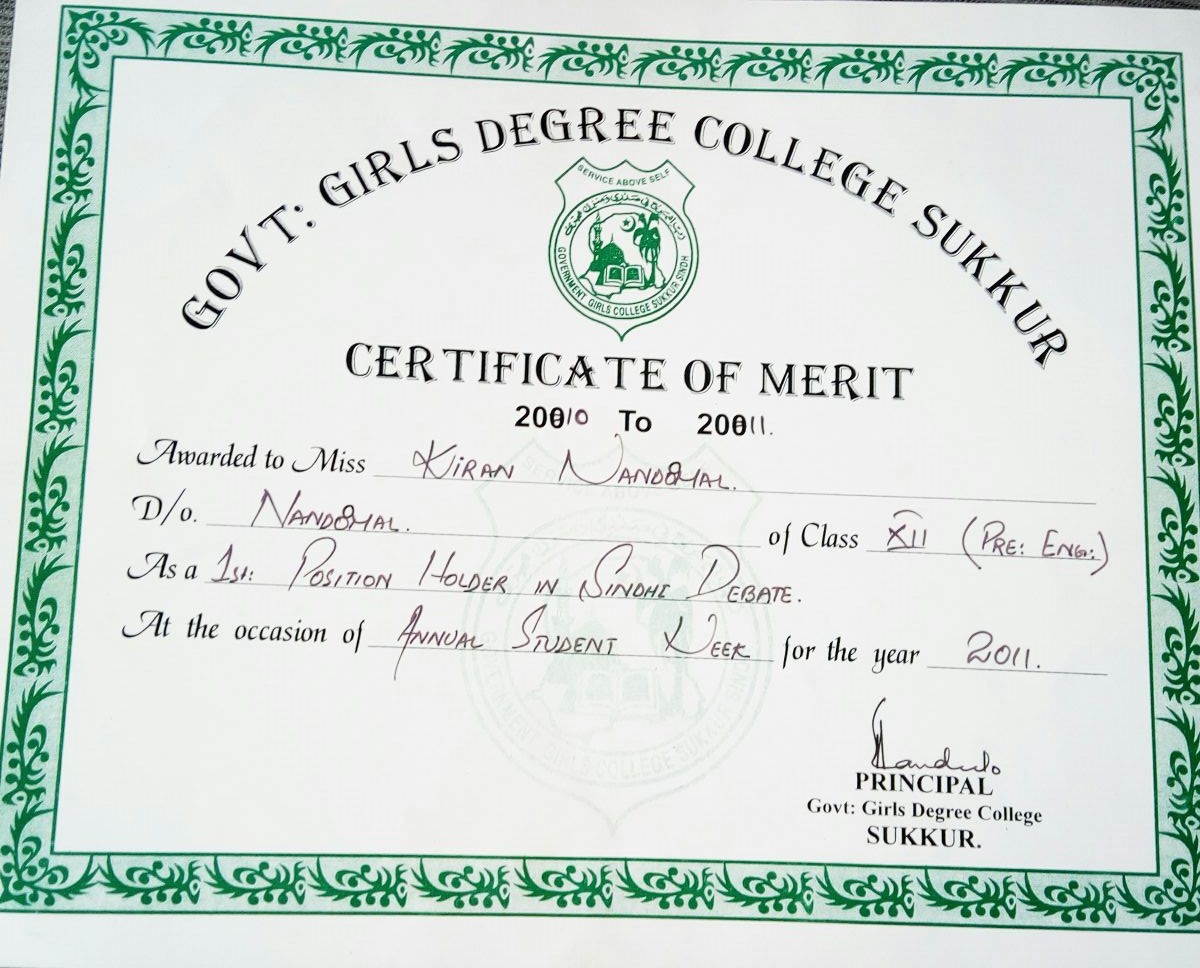 GOVT: GIRLS DEGREE COLLEGE SUKKUR
SERVICE ABOVE SELF
GOVERNMENT GIRLS COLLEGE SUKKUR SINDH
CERTIFICATE OF MERIT
2010 To 2011.
Awarded to Miss KIRAN NANDOMAL.
D/o. NANDOMAL. of Class XII (PRE: ENG:)
As a 1st: POSITION HOLDER IN SINDHI DEBATE.
At the occasion of ANNUAL STUDENT WEEK for the year 2011.
PRINCIPAL
Govt: Girls Degree College
SUKKUR.